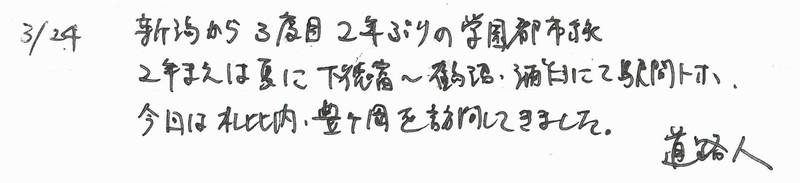 3/24 新潟から3度目 2年ぶりの学園都市線
2年まえは夏に下徳富～鶴沼・浦臼にて駅間トホ、
今日は札比内・豊ヶ岡を訪問してきました。
道路人